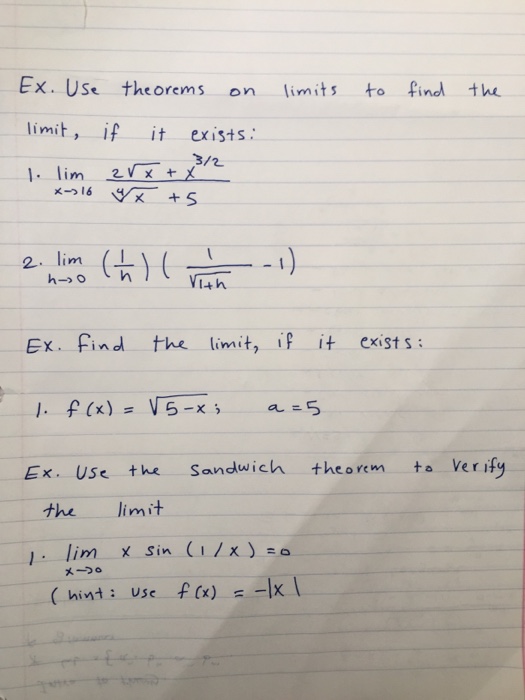 Ex. Use theorems on limits to find the
limit, if it exists:
1. lim x→16 (2√x + x^3/2) / (∜x + 5)
2. lim h→0 (1/h) (1/√1+h - 1)
Ex. Find the limit, if it exists:
1. f(x) = √5-x ; a = 5
Ex. Use the Sandwich theorem to Verify
the limit
1. lim x→0 x sin (1/x) = 0
(hint: use f(x) = -|x|